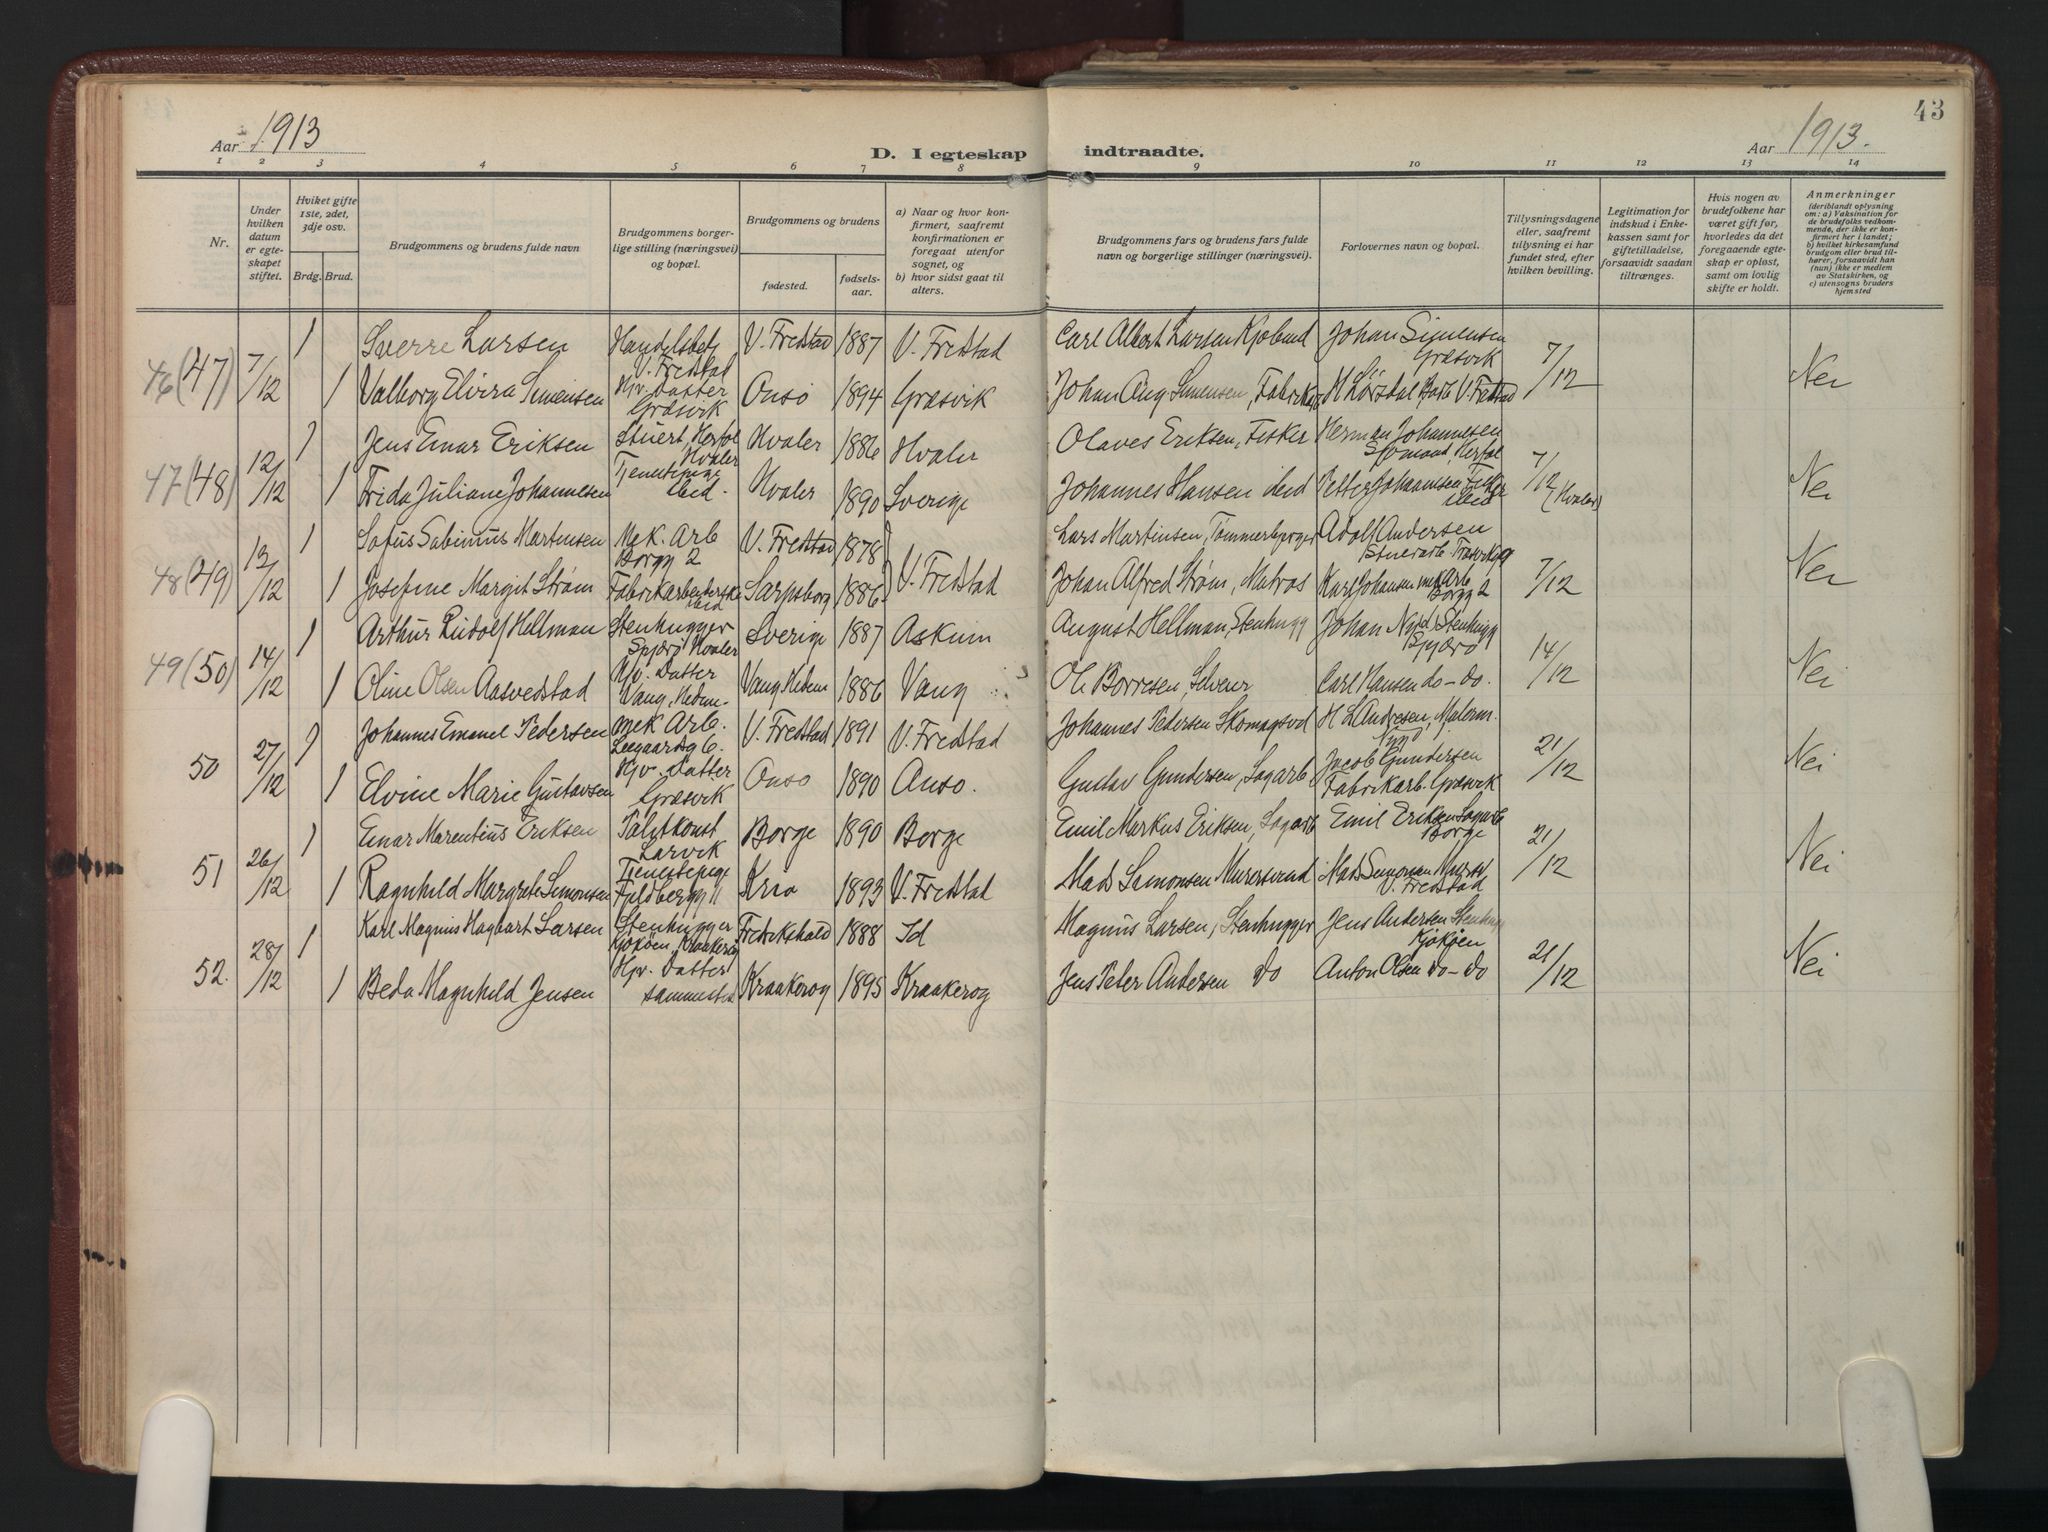 43
Aar 1913
D. I egteskap indtraadte.
Aar 1913.
1 2 3 4 5 6 7 8 9 10 11 12 13 14
Nr.
Under hvilken datum er egteskapet stiftet.
Hviket gifte 1ste, 2det, 3dje osv.
Brdg. Brud.
Brudgommens og brudens fulde navn
Brudgommens borgerlige stilling (næringsvei) og bopæl.
Brudgommens og brudens
fødested.
fødselsaar.
a) Naar og hvor konfirmert, saafremt konfirmationen er foregaat utenfor sognet, og
b) hvor sidst gaat til alters.
Brudgommens fars og brudens fars fulde navn og borgerlige stillinger (næringsvei).
Forlovernes navn og bopæl.
Tillysningsdagene eller, saafremt tillysning ei har fundet sted, efter hvilken bevilling.
Legitimation for indskud i Enkekassen samt for giftetilladelse, forsaavidt saadan tiltrænges.
Hvis nogen av brudefolkene har været gift før, hvorledes da det foregaaende egteskap er opløst, samt om lovlig skifte er holdt.
Anmerkninger
(deriblandt oplysning om: a) Vaksination for de brudefolks vedkommende, der ikke er konfirmert her i landet; b) hvilket kirkesamfund brudgom eller brud tilhører, forsaavidt han (hun) ikke er medlem av Statskirken, og c) utensogns bruders hjemsted
46 (47) 7/12 1 Sverre Larsen Handelsbetj V. Fredstad V. Fredstad 1887 V. Fredstad Carl Albert Larsen Kjøbmd Johan Simensen Græsvik 7/12 Nei
1 Valborg Elvira Simensen Hjv. Datter Græsvik Onsø 1894 Græsvik Johan Aug Simensen, Fabrikarb V. Fredstad
47 (48) 12/12 1 Jens Einar Eriksen Stuert, Herføl Hvaler Hvaler 1886 Hvaler Olaves Eriksen, Fisker Herman Johannesen Sjømand, Herføl 7/12 (Hvaler) Nei
1 Frida Juliane Johannesen Tjenestepige ibid. Hvaler 1890 Sverige Johannes Hansen ibid Petter Johannesen Fisker ibid
48 (49) 13/12 1 Sofus Sabinius Martinsen Mek. Arb Borgg 2 V. Fredstad 1878 V. Fredstad Lars Martinsen, Tømmerbærger Adolf Andersen 7/12 Nei
1 Josefine Margit Strøm Fabrikarbeiterske ibid Sarpsborg 1886 Johan Alfred Strøm, Matros Karl Johansen mek Arb Borgg 2
49 (50) 14/12 1 Arthur Rudolf Hellman Stenhugger Spjærø Hvaler Sverige 1887 Askum August Hellman, Stenhugg Johan Stenhugg Spjærø 14/12 Nei
1 Oline Olsen Aasvedstad Hjv. Datter Vang, Hedm. Vang Hedm 1886 Vang Ole Borresen, Selveier Carl Hansen do - do.
50 27/12 1 Johannes Emanel Pedersen Mek Arb. V. Fredstad 1891 V. Fredstad Johannes Pedersen Skomagsvd H L Andresen, Malerm. 21/12 Nei
1 Elvine Marie Gustavsen Hjv. Datter Græsvik Onsø 1890 Onsø. Gustav Gundersen, Sagarb Jacob Gundersen Fabrikarb. Græsvik
51 26/12 1 Einar Marentius Eriksen Larvik Borge 1890 Borge Emil Markus Eriksen, Sagarb Emil Eriksen Sagarb Borge 21/12 Nei
1 Ragnhild Margrete Simonsen Tjenestepige Fjeldbergg 11 Kria 1893 V. Fredstad Mads Simonsen Murersvend Mads Simonsen Murersv V. Fredstad
52. 28/12 1 Karl Magnus Hagbart Larsen Stenhugger Kjøkøen, Kraakerøy Fredrikshald 1888 Id Magnus Larsen, Stenhugger Jens Andersen Stenhugg Kjøkøen 21/12 Nei
1 Beda Magnhild Jensen Hjv. Datter sammested Kraakerøy 1895 Kraakerøy Jens Peter Andersen do Anton Olsen do - do